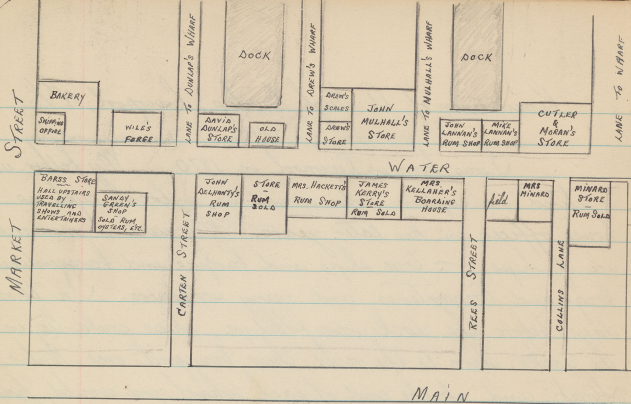 STREET
BAKERY
SHIPPING
OFFICE
WILE'S
FORGE
LANE TO DUNLAP'S WHARF
DAVID
DUNLAP'S
STORE
DOCK
OLD
HOUSE
LANE TO DREW'S WHARF
DREW'S
SCALES
DREW'S
STORE
JOHN
MULHALL'S
STORE
LANE TO MULHALL'S WHARF
DOCK
JOHN
LANNAN'S
RUM SHOP
MIKE
LANNAN'S
RUM SHOP
CUTLER
&
MORAN'S
STORE
LANE TO WHARF
WATER
MARKET
BARSS STORE
HALL UPSTAIRS
USED BY
TRAVELLING
SHOWS AND
ENTERTAINERS
SANDY
GREEN'S
SHOP
SOLD RUM
OYSTERS, ETC.
CARTEN STREET
JOHN
DELHANTY'S
RUM
SHOP
STORE
RUM
SOLD
MRS. HACKETT'S
RUM SHOP
JAMES
KERRY'S
STORE
RUM SOLD
MRS.
KELLAHER'S
BOARDING
HOUSE
REES STREET
field
MRS
MINARD
COLLINS LANE
MINARD
STORE
RUM SOLD
MAIN